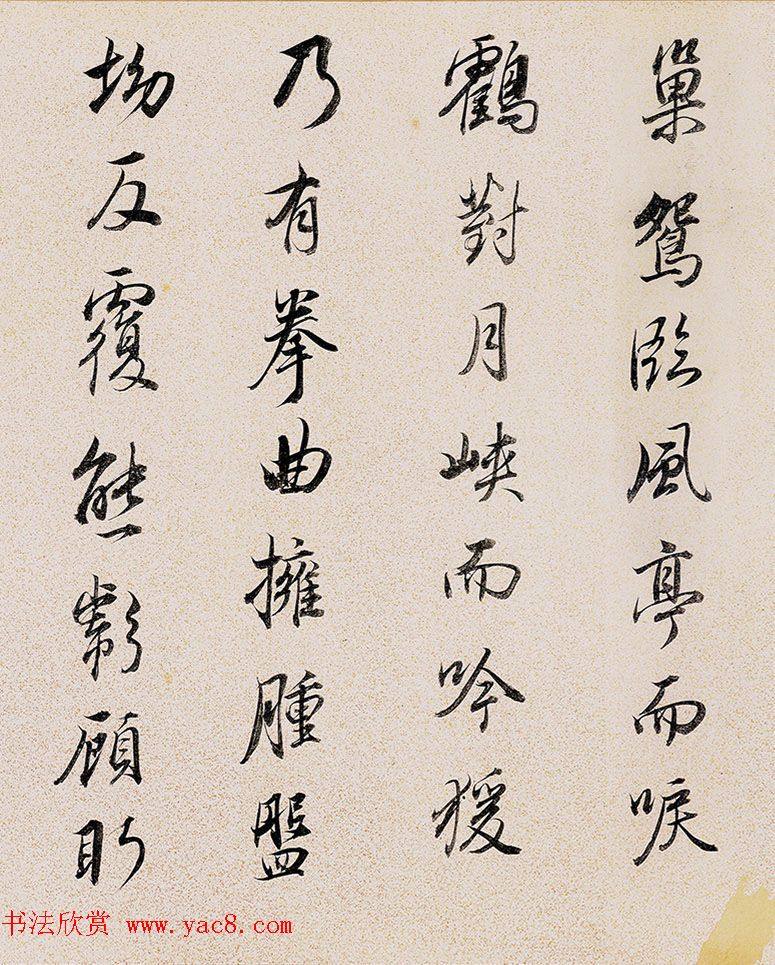 巢鴛臨風亭而唳
鸖對月峽而吟猨
乃有拳曲擁腫盤
坳反覆熊彪顧盼
书法欣赏 www.yac8.com